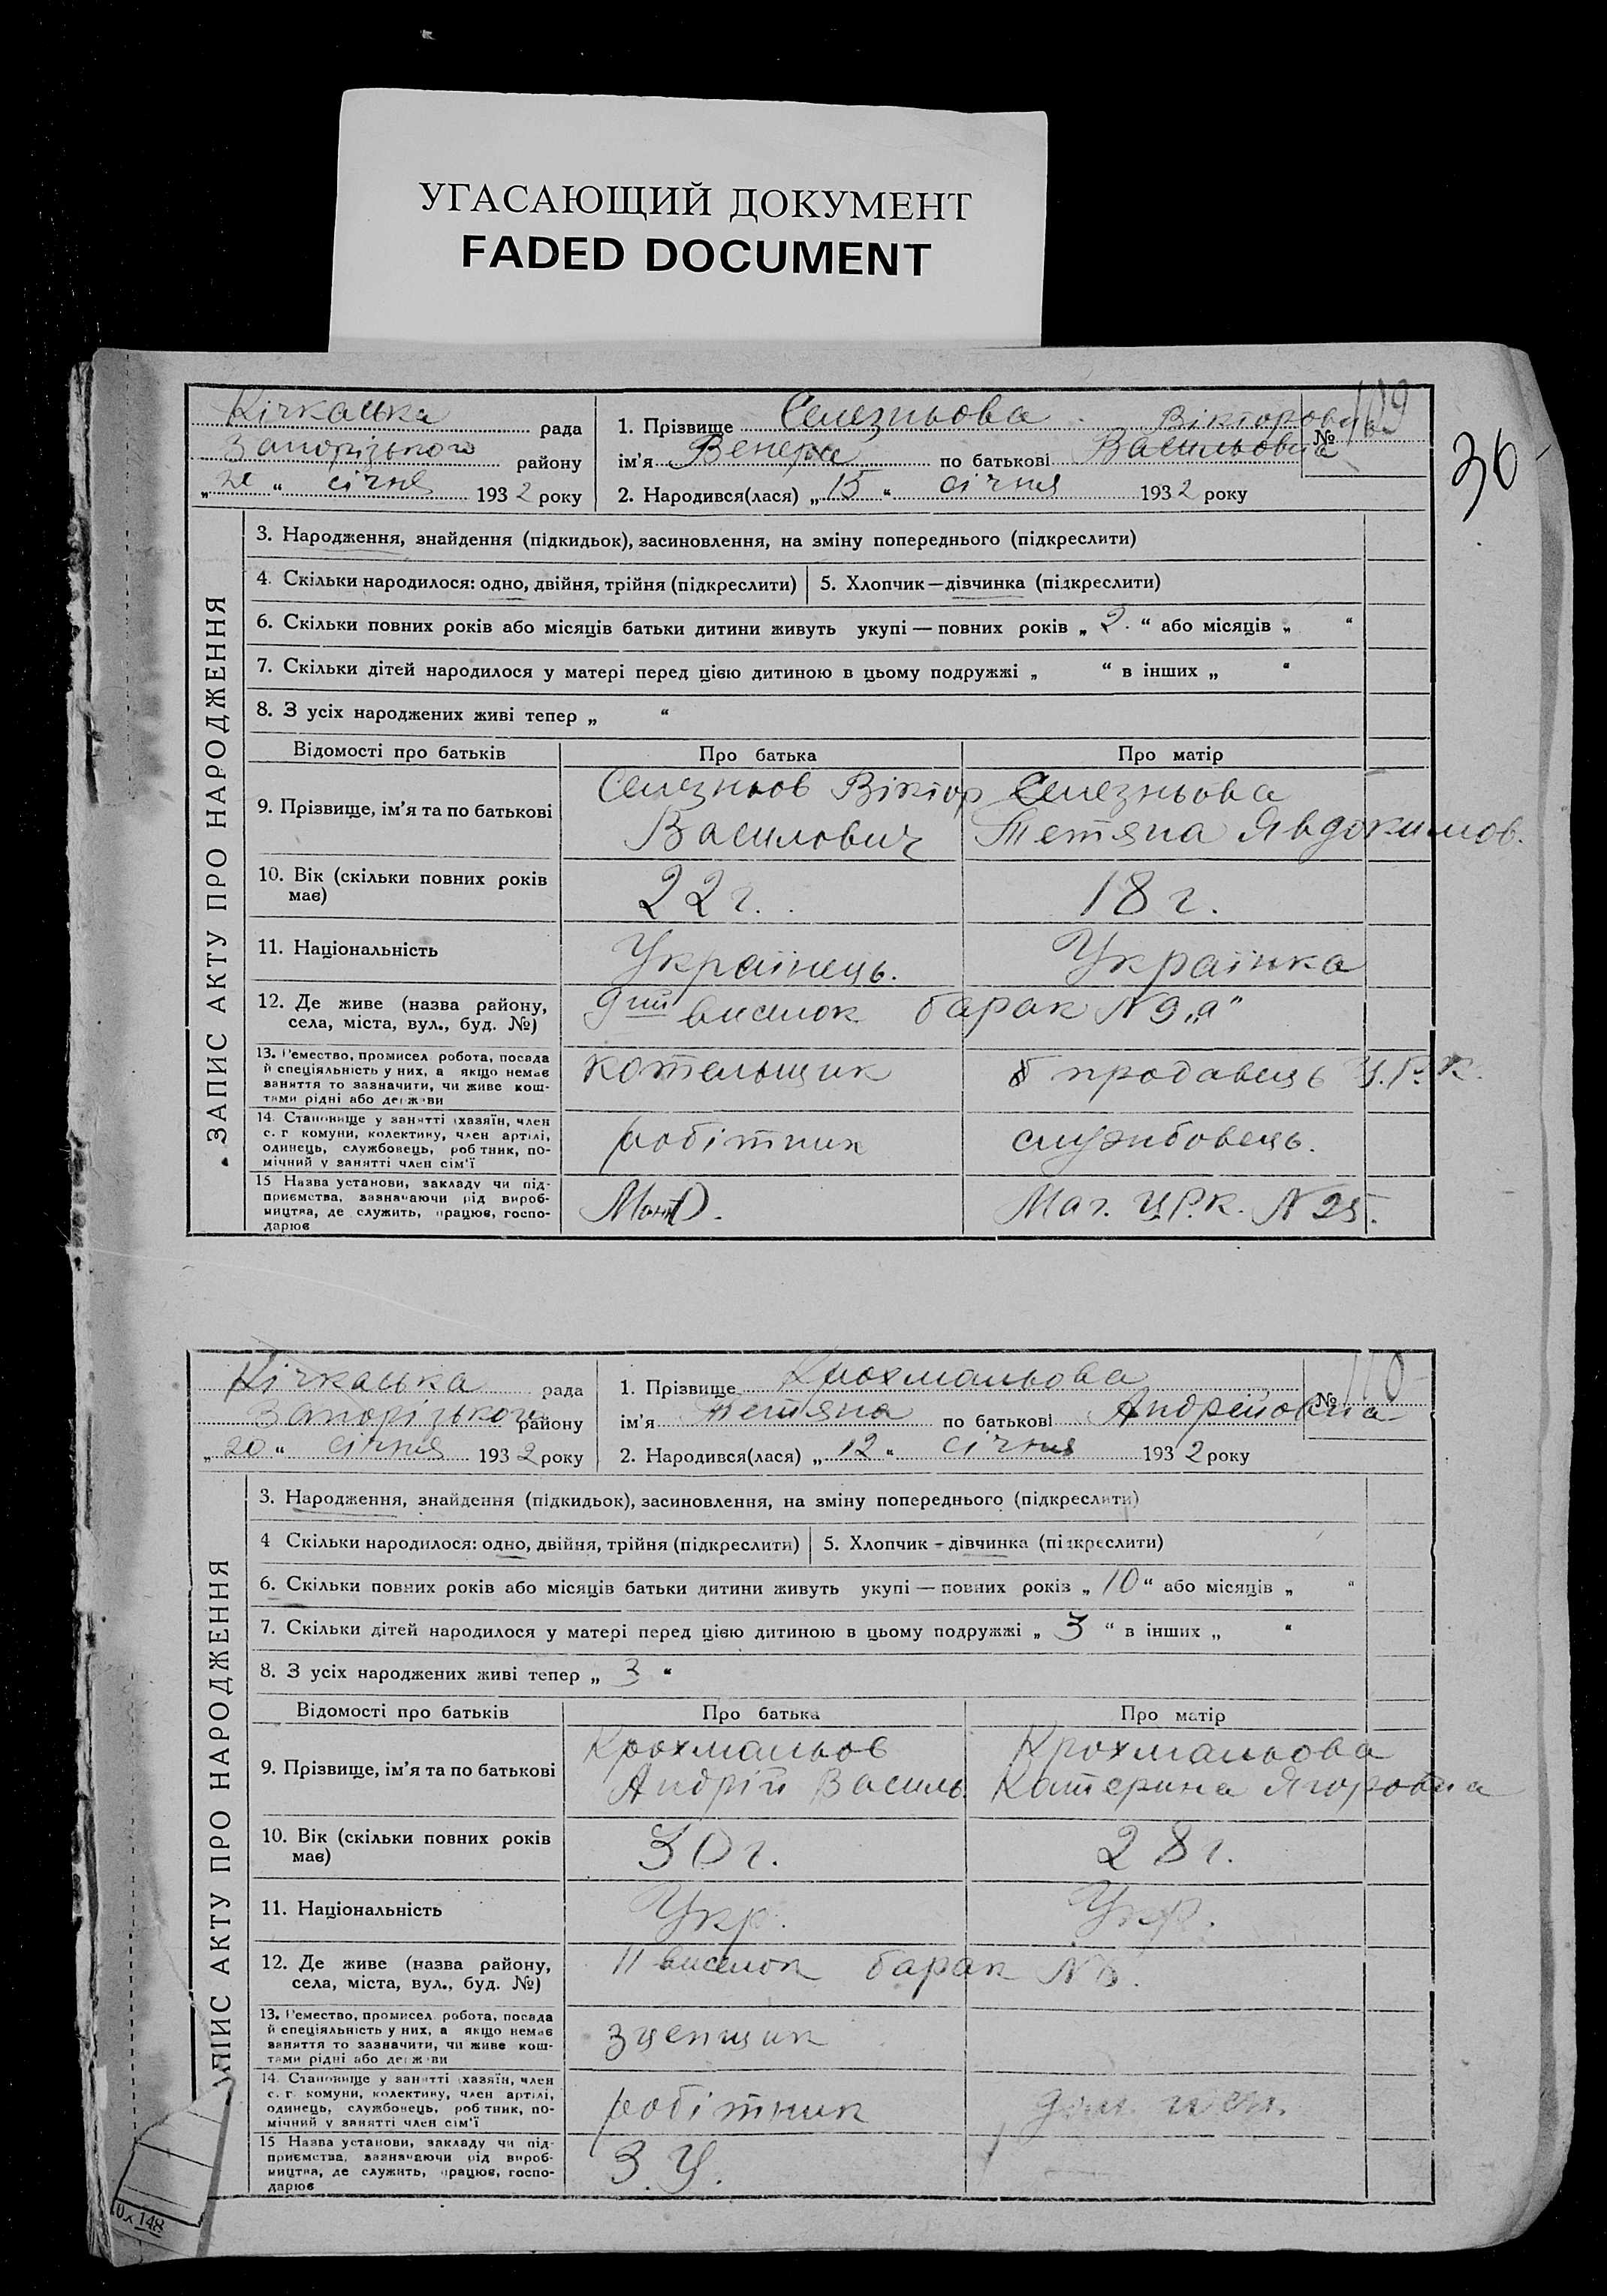 УГАСАЮЩИЙ ДОКУМЕНТ
FADED DOCUMENT
36
Кічкаська рада
Запорізького району
„20“ січня 1932 року
1. Прізвище Селезньова Вікторовна
№ 109
ім'я Венера по батькові Васильовна
2. Народився(лася) „15“ січня 1932 року
ЗАПИС АКТУ ПРО НАРОДЖЕННЯ
3. Народження, знайдення (підкидьок), засиновлення, на зміну попереднього (підкреслити)
4. Скільки народилося: одно, двійня, трійня (підкреслити) 5. Хлопчик—дівчинка (підкреслити)
6. Скільки повних років або місяців батьки дитини живуть укупі — повних років „2.“ або місяців „ “
7. Скільки дітей народилося у матері перед цією дитиною в цьому подружжі „ “ в інших „ “
8. З усіх народжених живі тепер „ “
Відомості про батьків Про батька Про матір
9. Прізвище, ім'я та по батькові
Селезньов Віктор
Василович
Селезньова
Тетяна Явдокимов.
10. Вік (скільки повних років
має)
22 г. 18 г.
11. Національність Українець. Українка
12. Де живе (назва району,
села, міста, вул., буд. №)
9тий виселок барак N 9 „а“
13. Ремество, промисел робота, посада
й спеціяльність у них, а якщо немає
заняття то зазначити, чи живе кош-
тами рідні або держави
котельщик продавець Ц.Р.К.
14. Становище у занятті (хазяїн, член
с. г комуни, колективу, член артілі,
одинець, службовець, робтник, по-
мічний у занятті член сім'ї
робітник службовець.
15 Назва установи, закладу чи під-
приємства, зазначаючи рід вироб-
ництва, де служить, працює, госпо-
дарює
Маг. Ц.Р.К. N 25.
Кічкаська рада
Запорізького району
„20“ січня 1932 року
1. Прізвище Крохмальова
№ 110
ім'я Тетяна по батькові Андрейовна
2. Народився(лася) „12“ січня 1932 року
ЗАПИС АКТУ ПРО НАРОДЖЕННЯ
3. Народження, знайдення (підкидьок), засиновлення, на зміну попереднього (підкреслити)
4 Скільки народилося: одно, двійня, трійня (підкреслити) 5. Хлопчик - дівчинка (підкреслити)
6. Скільки повних років або місяців батьки дитини живуть укупі — повних років „10“ або місяців „ “
7. Скільки дітей народилося у матері перед цією дитиною в цьому подружжі „3“ в інших „ “
8. З усіх народжених живі тепер „3“
Відомості про батьків Про батька Про матір
9. Прізвище, ім'я та по батькові
Крохмальов
Андрій Василь.
Крохмальова
Катерина Ягоровна
10. Вік (скільки повних років
має)
30 г. 28 г.
11. Національність Укр. Укр.
12. Де живе (назва району,
села, міста, вул., буд. №)
11 виселок барак N
13. Ремество, промисел робота, посада
й спеціяльність у них, а якщо немає
заняття то зазначити, чи живе кош-
тами рідні або держави
зцепщик
14. Становище у занятті (хазяїн, член
с. г комуни, колективу, член артілі,
одинець, службовець, робтник, по-
мічний у занятті член сім'ї
робітник
15 Назва установи, закладу чи під-
приємства, зазначаючи рід вироб-
ництва, де служить, працює, госпо-
дарює
З.У.
148